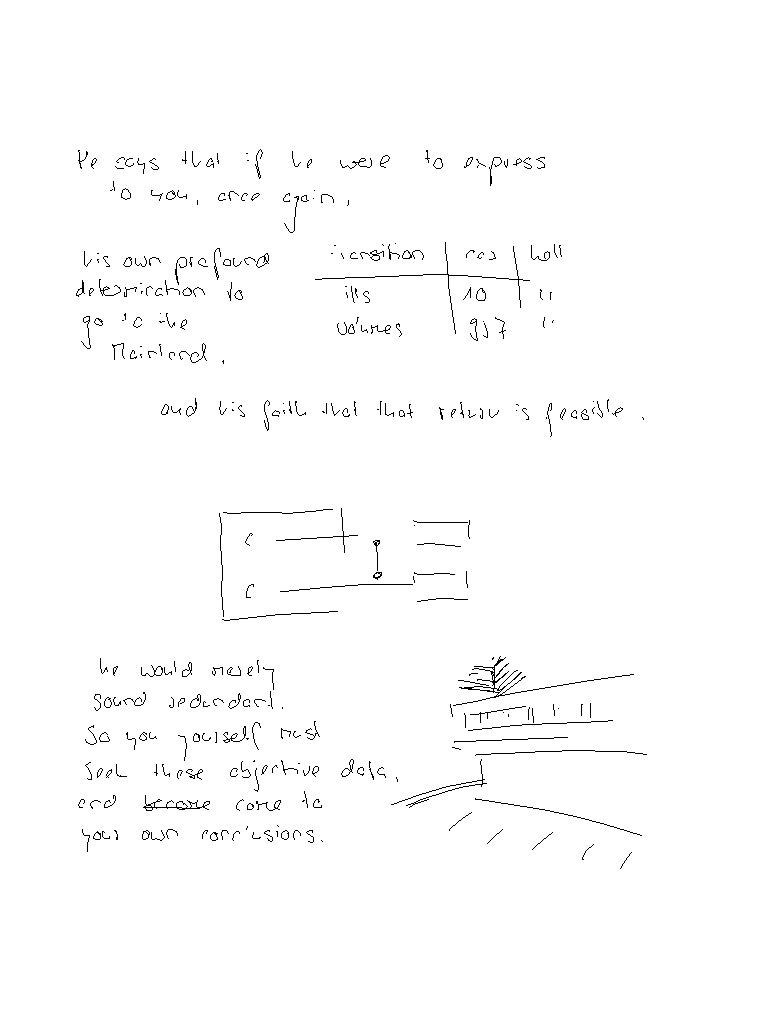 He says that if he were to express
to you, once again,
his own profound
determination to
go to the
Mainland,
transition row hall
ills 10 "
volumes 937 "
and his faith that that return is feasible,
C
C
he would merely
sound redundant.
So you yourself must
seek these objective data,
and become come to
your own conclusions.